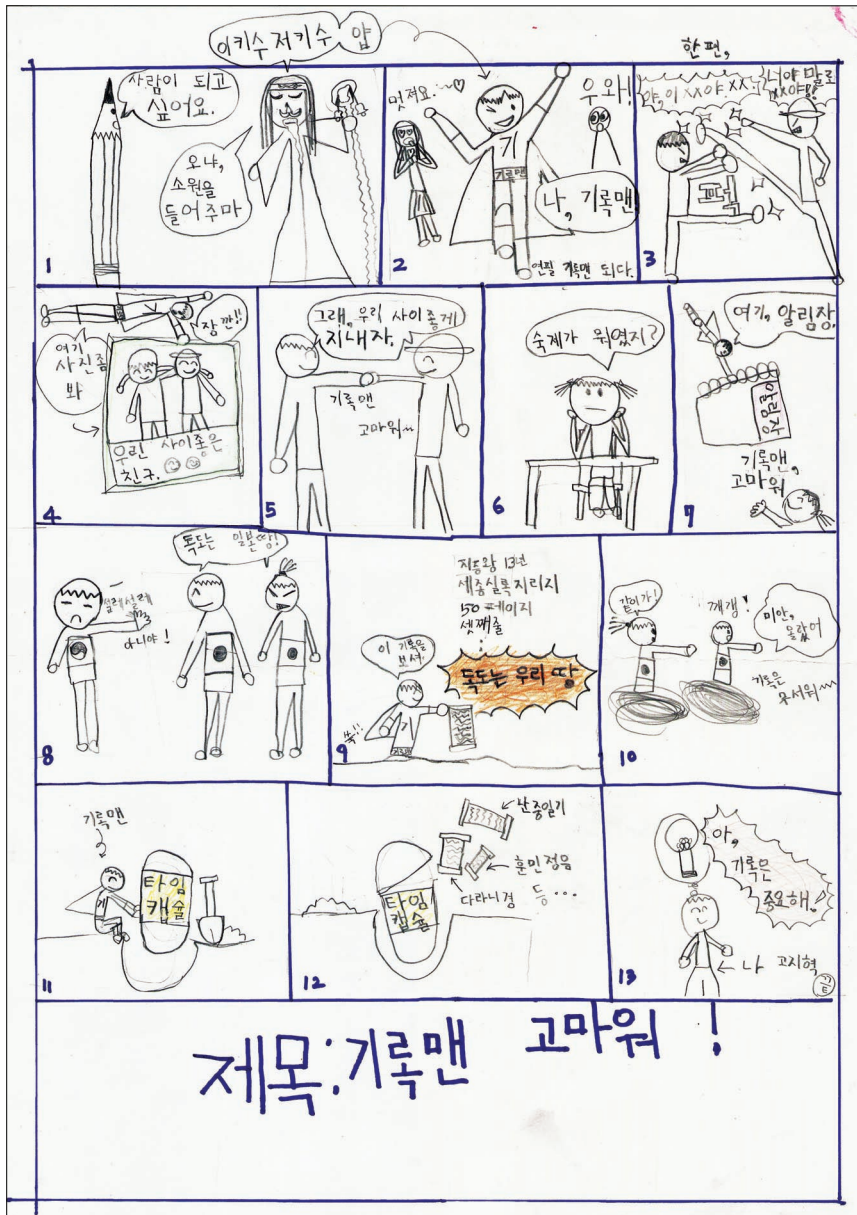 이키수저키수 얍
사람이 되고
싶어요.
오냐,
소원을
들어주마
1
멋져요.~♡
우와!
기
기록맨
나, 기록맨!
연필 기록맨 되다.
2
한편,
야, 이 XX야. XX..!
너야 말로
XX야!!
퍽
3
잠깐!!
여기
사진좀
봐
우린 사이좋은
친구.
4
그래, 우리 사이좋게
지내자.
기록맨
고마워~
5
숙제가 뭐였지?
6
여기, 알림장.
알림장
기록맨,
고마워
7
독도는 일본땅!
설레설레
아니야!
8
지증왕 13년
세종실록지리지
50 페이지
셋째줄
이 기록을
보셔.
독도는 우리 땅
기
기록맨
9
같이가!
깨갱!
미안,
몰랐어
기록은
무서워~
10
기록맨
기
타임
캡슐
11
난중일기
훈민정음
다라니경 등...
타임
캡슐
12
아,
기록은
중요해!
나 고지혁
끝
13
제목:기록맨 고마워!